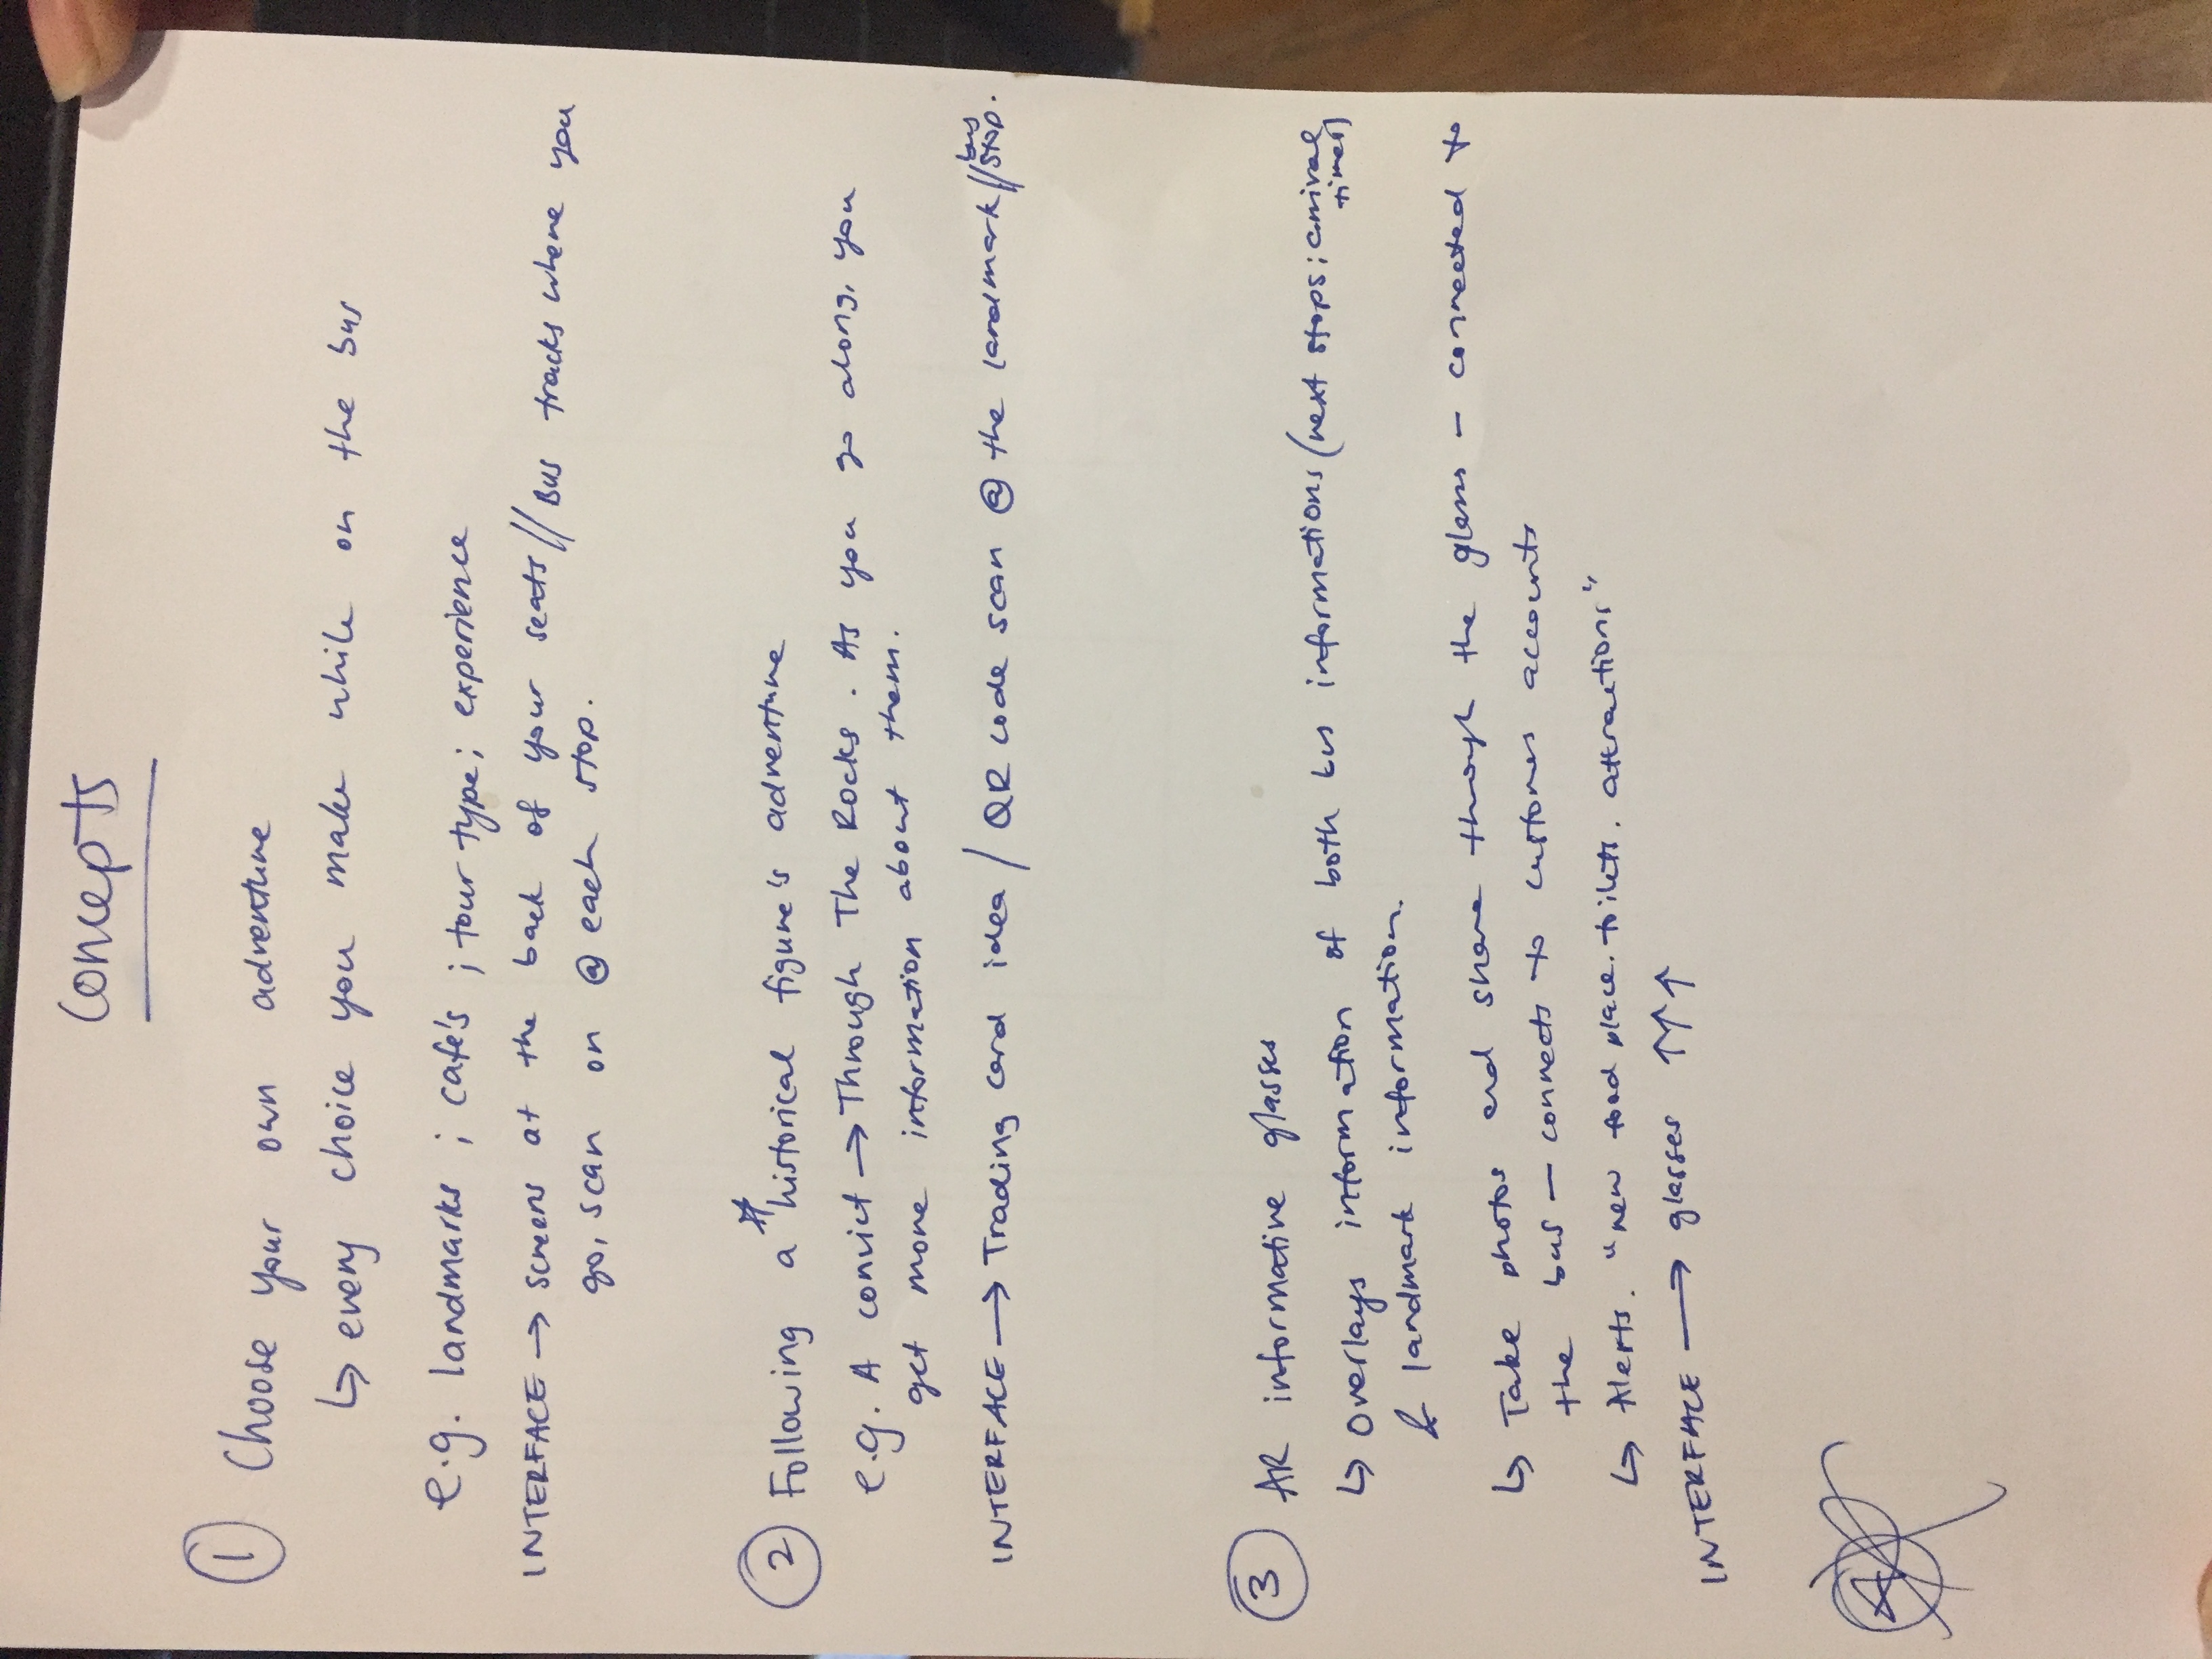 Concepts
① Choose your own adventure
↳ every choice you make while on the bus
e.g. landmarks ; cafe's ; tour type ; experience
INTERFACE → screens at the back of your seats // Bus tracks where you
go, scan on @ each stop.
② Following a * historical figure's adventure
e.g. A convict → Through The Rocks. As you go along, you
get more information about them.
INTERFACE → Trading card idea / QR code scan @ the landmark // bus stop.
③ AR informative glasses
↳ Overlays information of both bus informations (next stops ; arrival times)
& landmark information.
↳ Take photos and share through the glass – connected to
the bus – connects to customer accounts
↳ Alerts. "new food place. toilets. attractions"
INTERFACE → glasses ↑↑↑